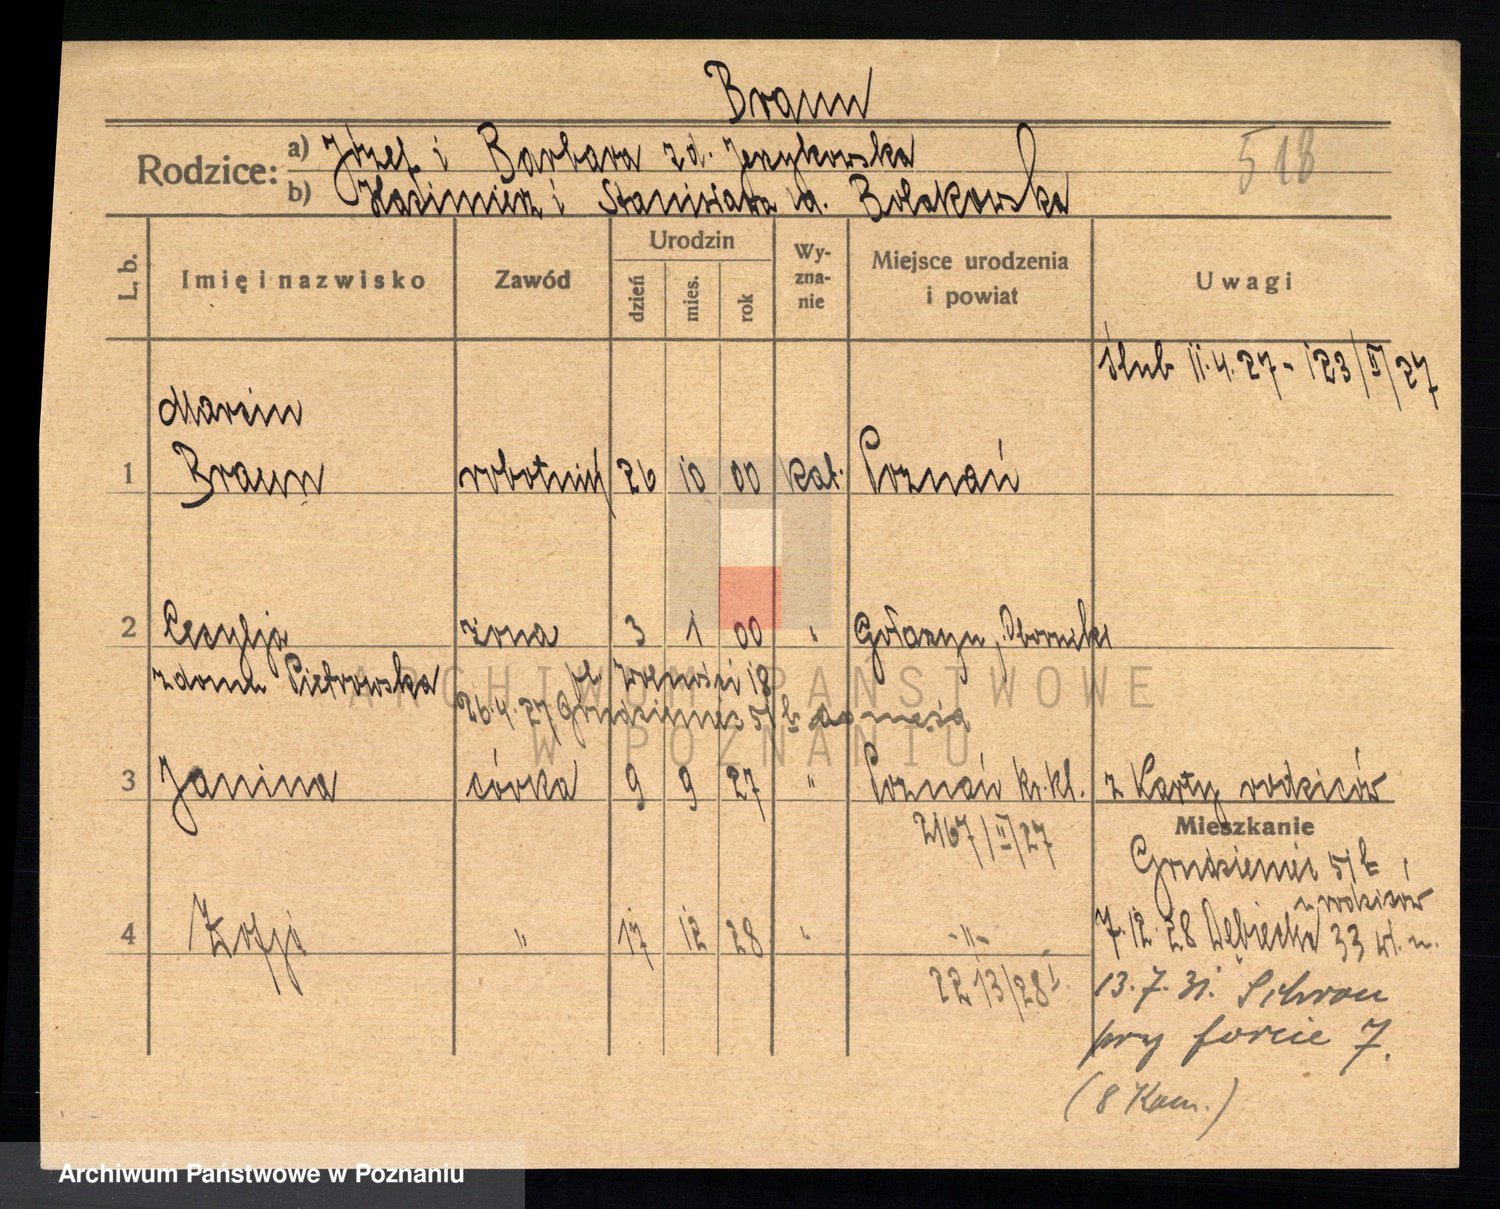 Braun
518
Rodzice: a) Józef i Barbara zd. Jerzykowska
b) Kazimierz i Stanisława zd.
L. b. Imię i nazwisko Zawód Urodzin dzień mies. rok Wyznanie Miejsce urodzenia i powiat Uwagi
Ślub 11.4.27 - 123/II/27
Marcin
1 Braun robotnik 26 10 00 kat. Poznań
2 Cecylja żona 3 1 00 " Gołaszyn, Oborniki
zdomu Pietrowska pl. Wolności 18
26.4.27 Grudzieniec 5/b do męża
3 Janina córka 9 9 27 " Poznań kr. kl. z Karty rodziców
2167/II/27
Mieszkanie
Grudzieniec 5/b
u rodziców
4 Zofja " 17 12 28 " -"- 7.12.28 Dębiecka 33 wł. m.
2213/28
13.7.31. Schron
przy forcie 7.
(8 Kom.)
ARCHIWUM PAŃSTWOWE
W POZNANIU
Archiwum Państwowe w Poznaniu